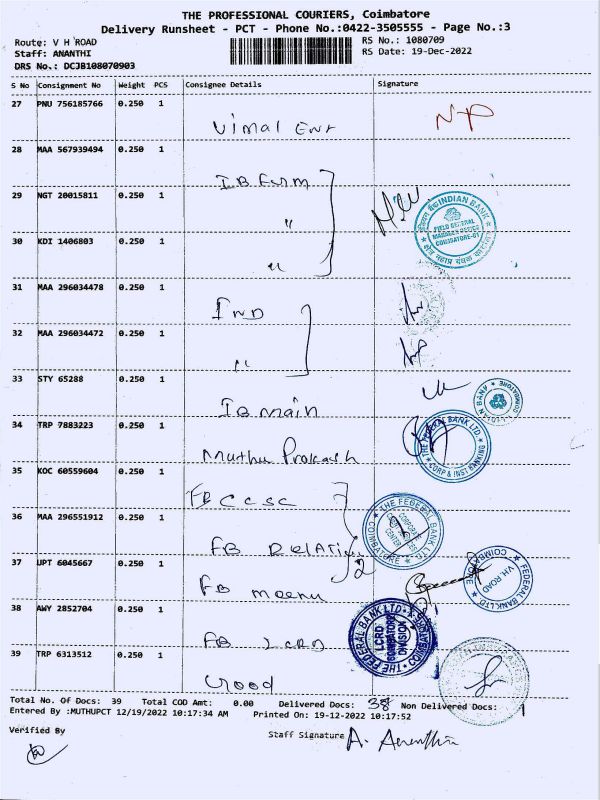 THE PROFESSIONAL COURIERS, Coimbatore
Delivery Runsheet - PCT - Phone No.:0422-3505555 - Page No.:3
Route: V H ROAD
Staff: ANANTHI
DRS No.: DCJB108070903
RS No.: 1080709
RS Date: 19-Dec-2022
S No Consignment No Weight PCS Consignee Details Signature
27 PNU 756185766 0.250 1 Vimal Ent NP
28 MAA 567939494 0.250 1 IB Furm
29 NGT 20015811 0.250 1 "
INDIAN BANK
FIELD GENERAL
MANAGER'S OFFICE
COIMBATORE-01
30 KDI 1406803 0.250 1 "
31 MAA 296034478 0.250 1 IND
32 MAA 296034472 0.250 1 "
33 STY 65288 0.250 1 IB main
34 TRP 7883223 0.250 1 Muthu Prakash
THE FEDERAL BANK LTD
CORP & INST BANKING
35 KOC 60559604 0.250 1 FB CCSC
36 MAA 296551912 0.250 1
THE FEDERAL BANK LTD
COIMBATORE
37 UPT 6045667 0.250 1 FB meenu
FEDERAL BANK LTD
COIMBATORE
V.H. ROAD
38 AWY 2852704 0.250 1 FB LCRD
THE FEDERAL BANK LTD.
LCRD
COIMBATORE
DIVISION
39 TRP 6313512 0.250 1 Good
Total No. Of Docs: 39 Total COD Amt: 0.00 Delivered Docs: 38 Non Delivered Docs: 1
Entered By :MUTHUPCT 12/19/2022 10:17:34 AM Printed On: 19-12-2022 10:17:52
Verified By
Staff Signature A. Ananthi